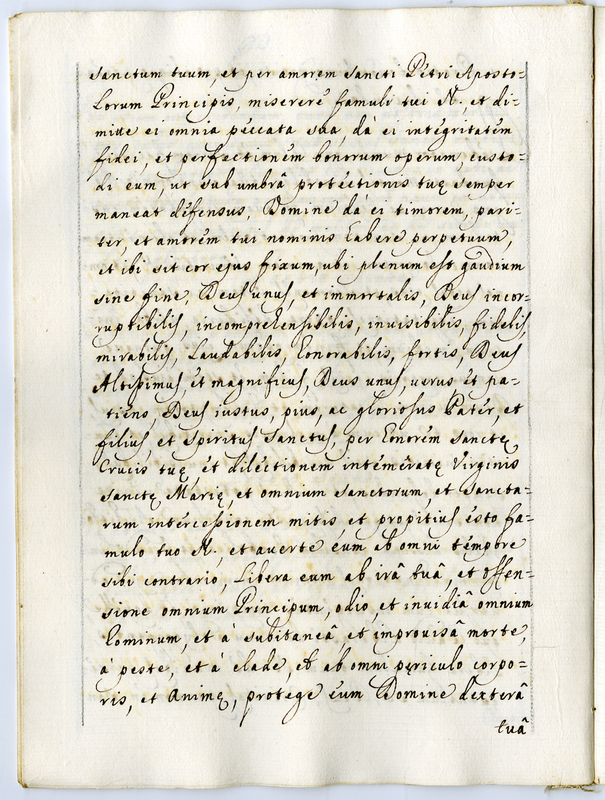 sanctum tuum, et per amorem sancti Pétri Aposto=
lorum Principis, misereré famuli tui N., et di=
mitte ei omnia péccata sua, dà ei intégritatém
fidei, et perfectioném bonorum operum, custo=
di eum, ut sub umbrâ protéctionis tuę semper
maneat défensus, Domine dà ei timorem, pari=
ter, et amorém tui nominis habere perpetuum,
et ibi sit cor ejus fixum, ubi plenum est gaudium
sine fine, Deus unus, et immortalis, Deus incor=
ruptibilis, incomprehensibilis, invisibilis, fidelis,
mirabilis, laudabilis, honorabilis, fortis, Deus
Altissimus, ét magnificus, Deus unus, uerus ét pa=
tiens, Deus iustus, pius, ac gloriosus Patér, et
filius, et Spiritus Sanctus, per honorém sanctę
Crucis tuę, ét diléctionem intémératę Virginis
sanctę Marię, et omnium sanctorum, et sancta=
rum intercessionem mitis, et propitius ésto fa=
mulo tuo N., et auerte éum ab omni témpore
sibi contrario, libera eum ab irâ tuâ, et offen=
sione omnium Principum, odio, et inuidiâ omnium
hominum, et à subitaneâ, et improuisâ morte,
à peste, et à clade, et ab omni pęriculo corpo=
ris, et animę, protege éum Domine dexterâ
tuâ